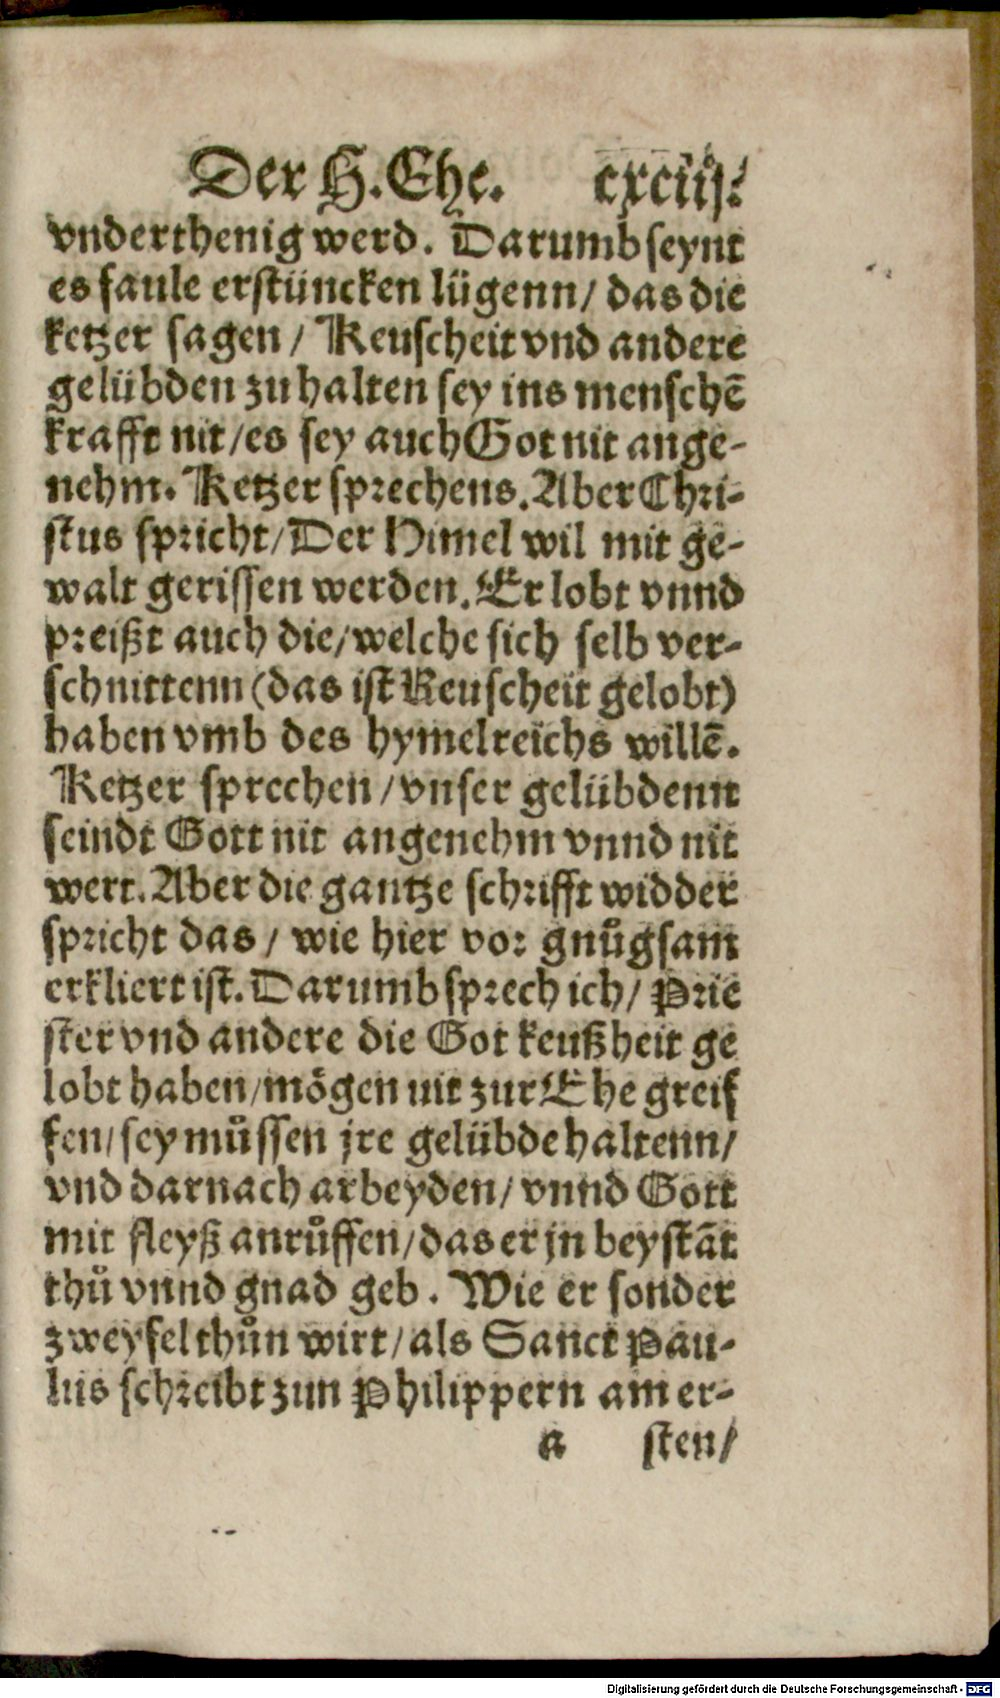 Der H. Ehe. cxciij.
vnderthenig werd. Darumb seynt
es faule erstüncken lügenn/ das die
ketzer sagen/ Keuscheit vnd andere
gelübden zu halten sey ins menschē
krafft nit/es sey auch Got nit ange-
nehm. Ketzer sprechens. Aber Chri-
stus spricht/Der Himel wil mit ge-
walt gerissen werden. Er lobt vnnd
preißt auch die/welche sich selb ver-
schnittenn (das ist Keuscheit gelobt)
haben vmb des hymelreichs willē.
Ketzer sprechen/vnser gelübdenn
seindt Gott nit angenehm vnnd nit
wert. Aber die gantze schrifft widder
spricht das/ wie hier vor gnůgsam
erkliert ist. Darumb sprech ich/ Prie
ster vnd andere die Got keußheit ge
lobt haben/mögen nit zur Ehe greif
fen/sey můssen jre gelübde haltenn/
vnd darnach arbeyden/ vnnd Gott
mit fleyß anrůffen/das er jn beystāt
thů vnnd gnad geb. Wie er sonder
zweyfel thůn wirt/als Sanct Pau-
lus schreibt zun Philippern am er-
a sten/
Digitalisierung gefördert durch die Deutsche Forschungsgemeinschaft - DFG